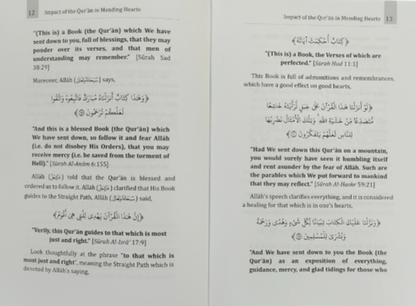 12 Impact of the Qur'ān in Mending Hearts
"(This) is a Book (the Qur'ān) which We have
sent down to you, full of blessings, that they may
ponder over its verses, and that men of
understanding may remember." [Sūrah Sad
38:29]
Moreover, Allāh says,
﴿وَهَٰذَا كِتَابٌ أَنزَلْنَاهُ مُبَارَكٌ فَاتَّبِعُوهُ وَاتَّقُوا
لَعَلَّكُمْ تُرْحَمُونَ﴾
"And this is a blessed Book (the Qur'ān) which
We have sent down, so follow it and fear Allāh
(i.e. do not disobey His Orders), that you may
receive mercy (i.e. be saved from the torment of
Hell)." [Sūrah Al-An'ām 6:155]
Allāh told that the Qur'ān is blessed and
ordered us to follow it. Allāh clarified that His Book
guides to the Straight Path. Allāh said,
﴿إِنَّ هَٰذَا الْقُرْآنَ يَهْدِي لِلَّتِي هِيَ أَقْوَمُ﴾
"Verily, this Qur'ān guides to that which is most
just and right." [Sūrah Al-Isrā' 17:9]
Look thoughtfully at the phrase "to that which is
most just and right", meaning the Straight Path which is
denoted by Allāh's saying,
Impact of the Qur'ān in Mending Hearts 13
﴿كِتَابٌ أُحْكِمَتْ آيَاتُهُ﴾
"(This is) a Book, the Verses of which are
perfected." [Sūrah Hud 11:1]
This Book is full of admonitions and remembrances,
which have a good effect on good hearts.
﴿لَوْ أَنزَلْنَا هَٰذَا الْقُرْآنَ عَلَىٰ جَبَلٍ لَّرَأَيْتَهُ خَاشِعًا
مُّتَصَدِّعًا مِّنْ خَشْيَةِ اللَّهِ وَتِلْكَ الْأَمْثَالُ نَضْرِبُهَا
لِلنَّاسِ لَعَلَّهُمْ يَتَفَكَّرُونَ﴾
"Had We sent down this Qur'ān on a mountain,
you would surely have seen it humbling itself
and rent asunder by the fear of Allāh. Such are
the parables which We put forward to mankind
that they may reflect." [Sūrah Al-Hashr 59:21]
Allāh's speech clarifies everything, and it is considered
a healing for that which is in one's hearts,
﴿وَنَزَّلْنَا عَلَيْكَ الْكِتَابَ تِبْيَانًا لِّكُلِّ شَيْءٍ وَهُدًى وَرَحْمَةً
وَبُشْرَىٰ لِلْمُسْلِمِينَ﴾
"And We have sent down to you the Book (the
Qur'ān) as an exposition of everything,
guidance, mercy, and glad tidings for those who